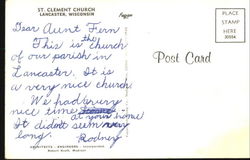 ST. CLEMENT CHURCH
LANCASTER, WISCONSIN
Dear Aunt Fern
This is the church
of our parish in
Lancaster. It is
a very nice church
We had very
nice time
at your home
It didn't seem very
long.
Rodney
Post Card
PLACE
STAMP
HERE
ARCHITECTS - ENGINEERS